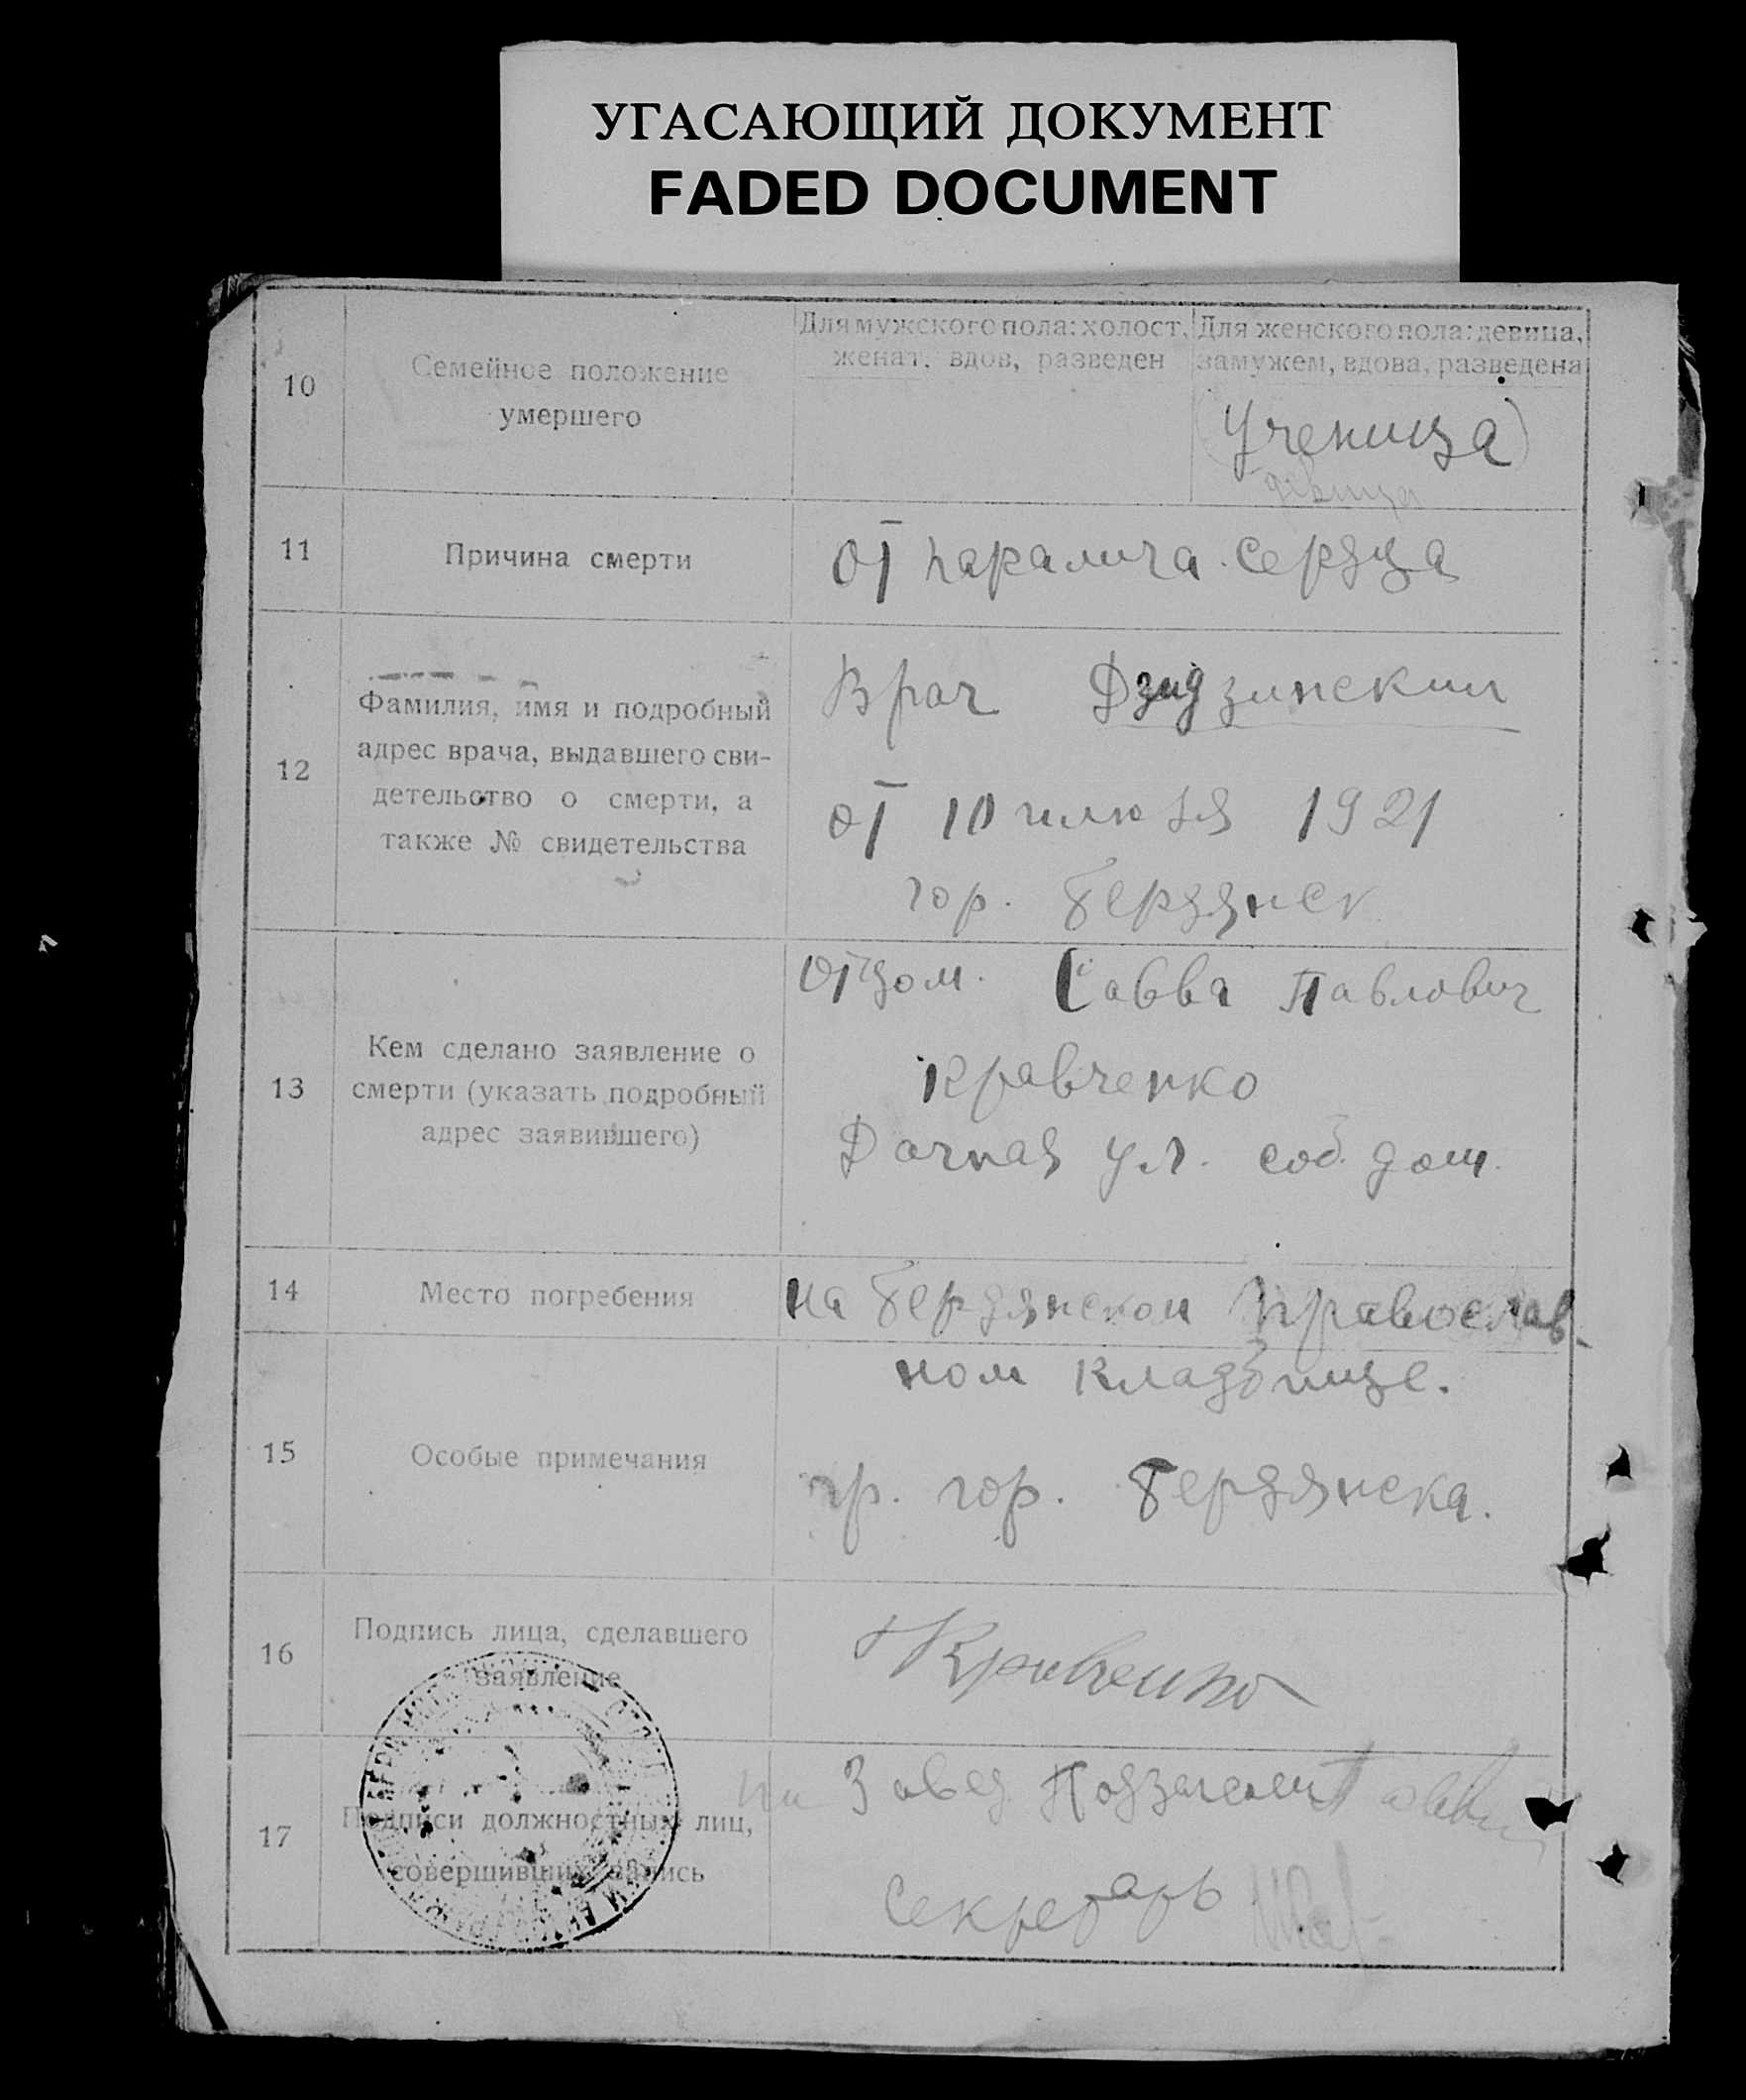 УГАСАЮЩИЙ ДОКУМЕНТ
FADED DOCUMENT
10
Семейное положение
умершего
Для мужского пола: холост,
женат, вдов, разведен
Для женского пола: девица,
замужем, вдова, разведена
(Ученица)
девица
11
Причина смерти
от паралича сердца
12
Фамилия, имя и подробный
адрес врача, выдавшего сви-
детельство о смерти, а
также № свидетельства
Врач Дзидзинский
от 10 июля 1921
гор. Бердянск
13
Кем сделано заявление о
смерти (указать подробный
адрес заявившего)
Отцом. Савва Павлович
Кравченко
Дачная ул. соб. дом.
14
Место погребения
на Бердянском православ-
ном кладбище.
15
Особые примечания
гр. гор. Бердянска.
16
Подпись лица, сделавшего
заявление
Кравченко
17
Подписи должностных лиц,
совершивших запись
Завед. Подзагсом
Секретарь